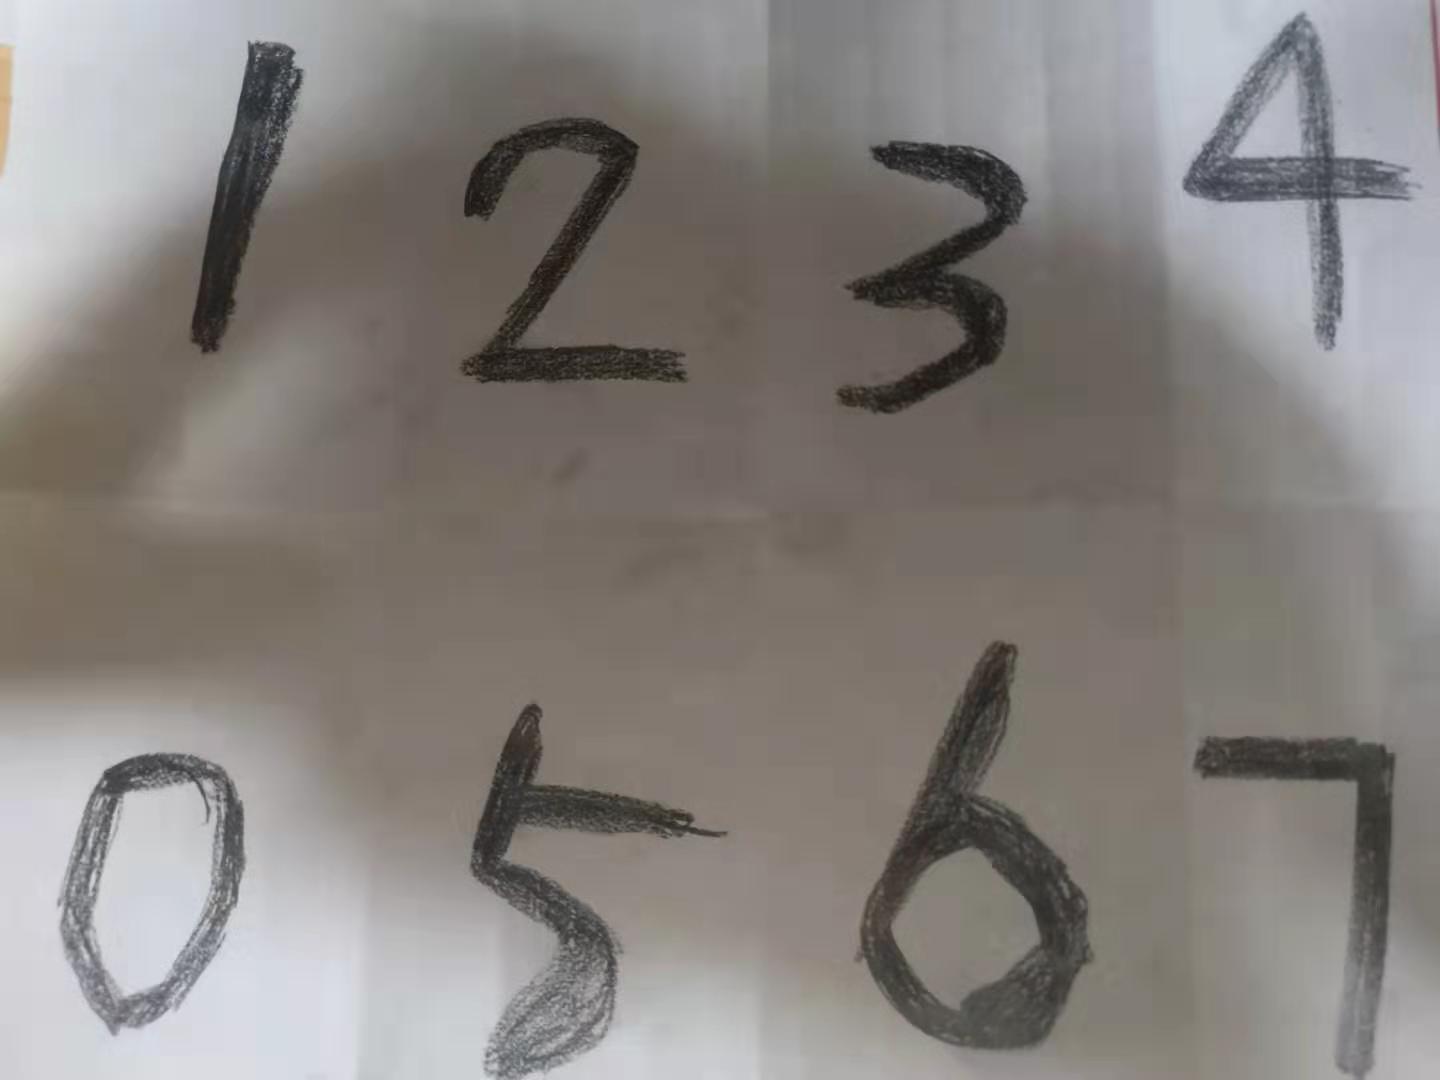 1 2 3 4
0 5 6 7